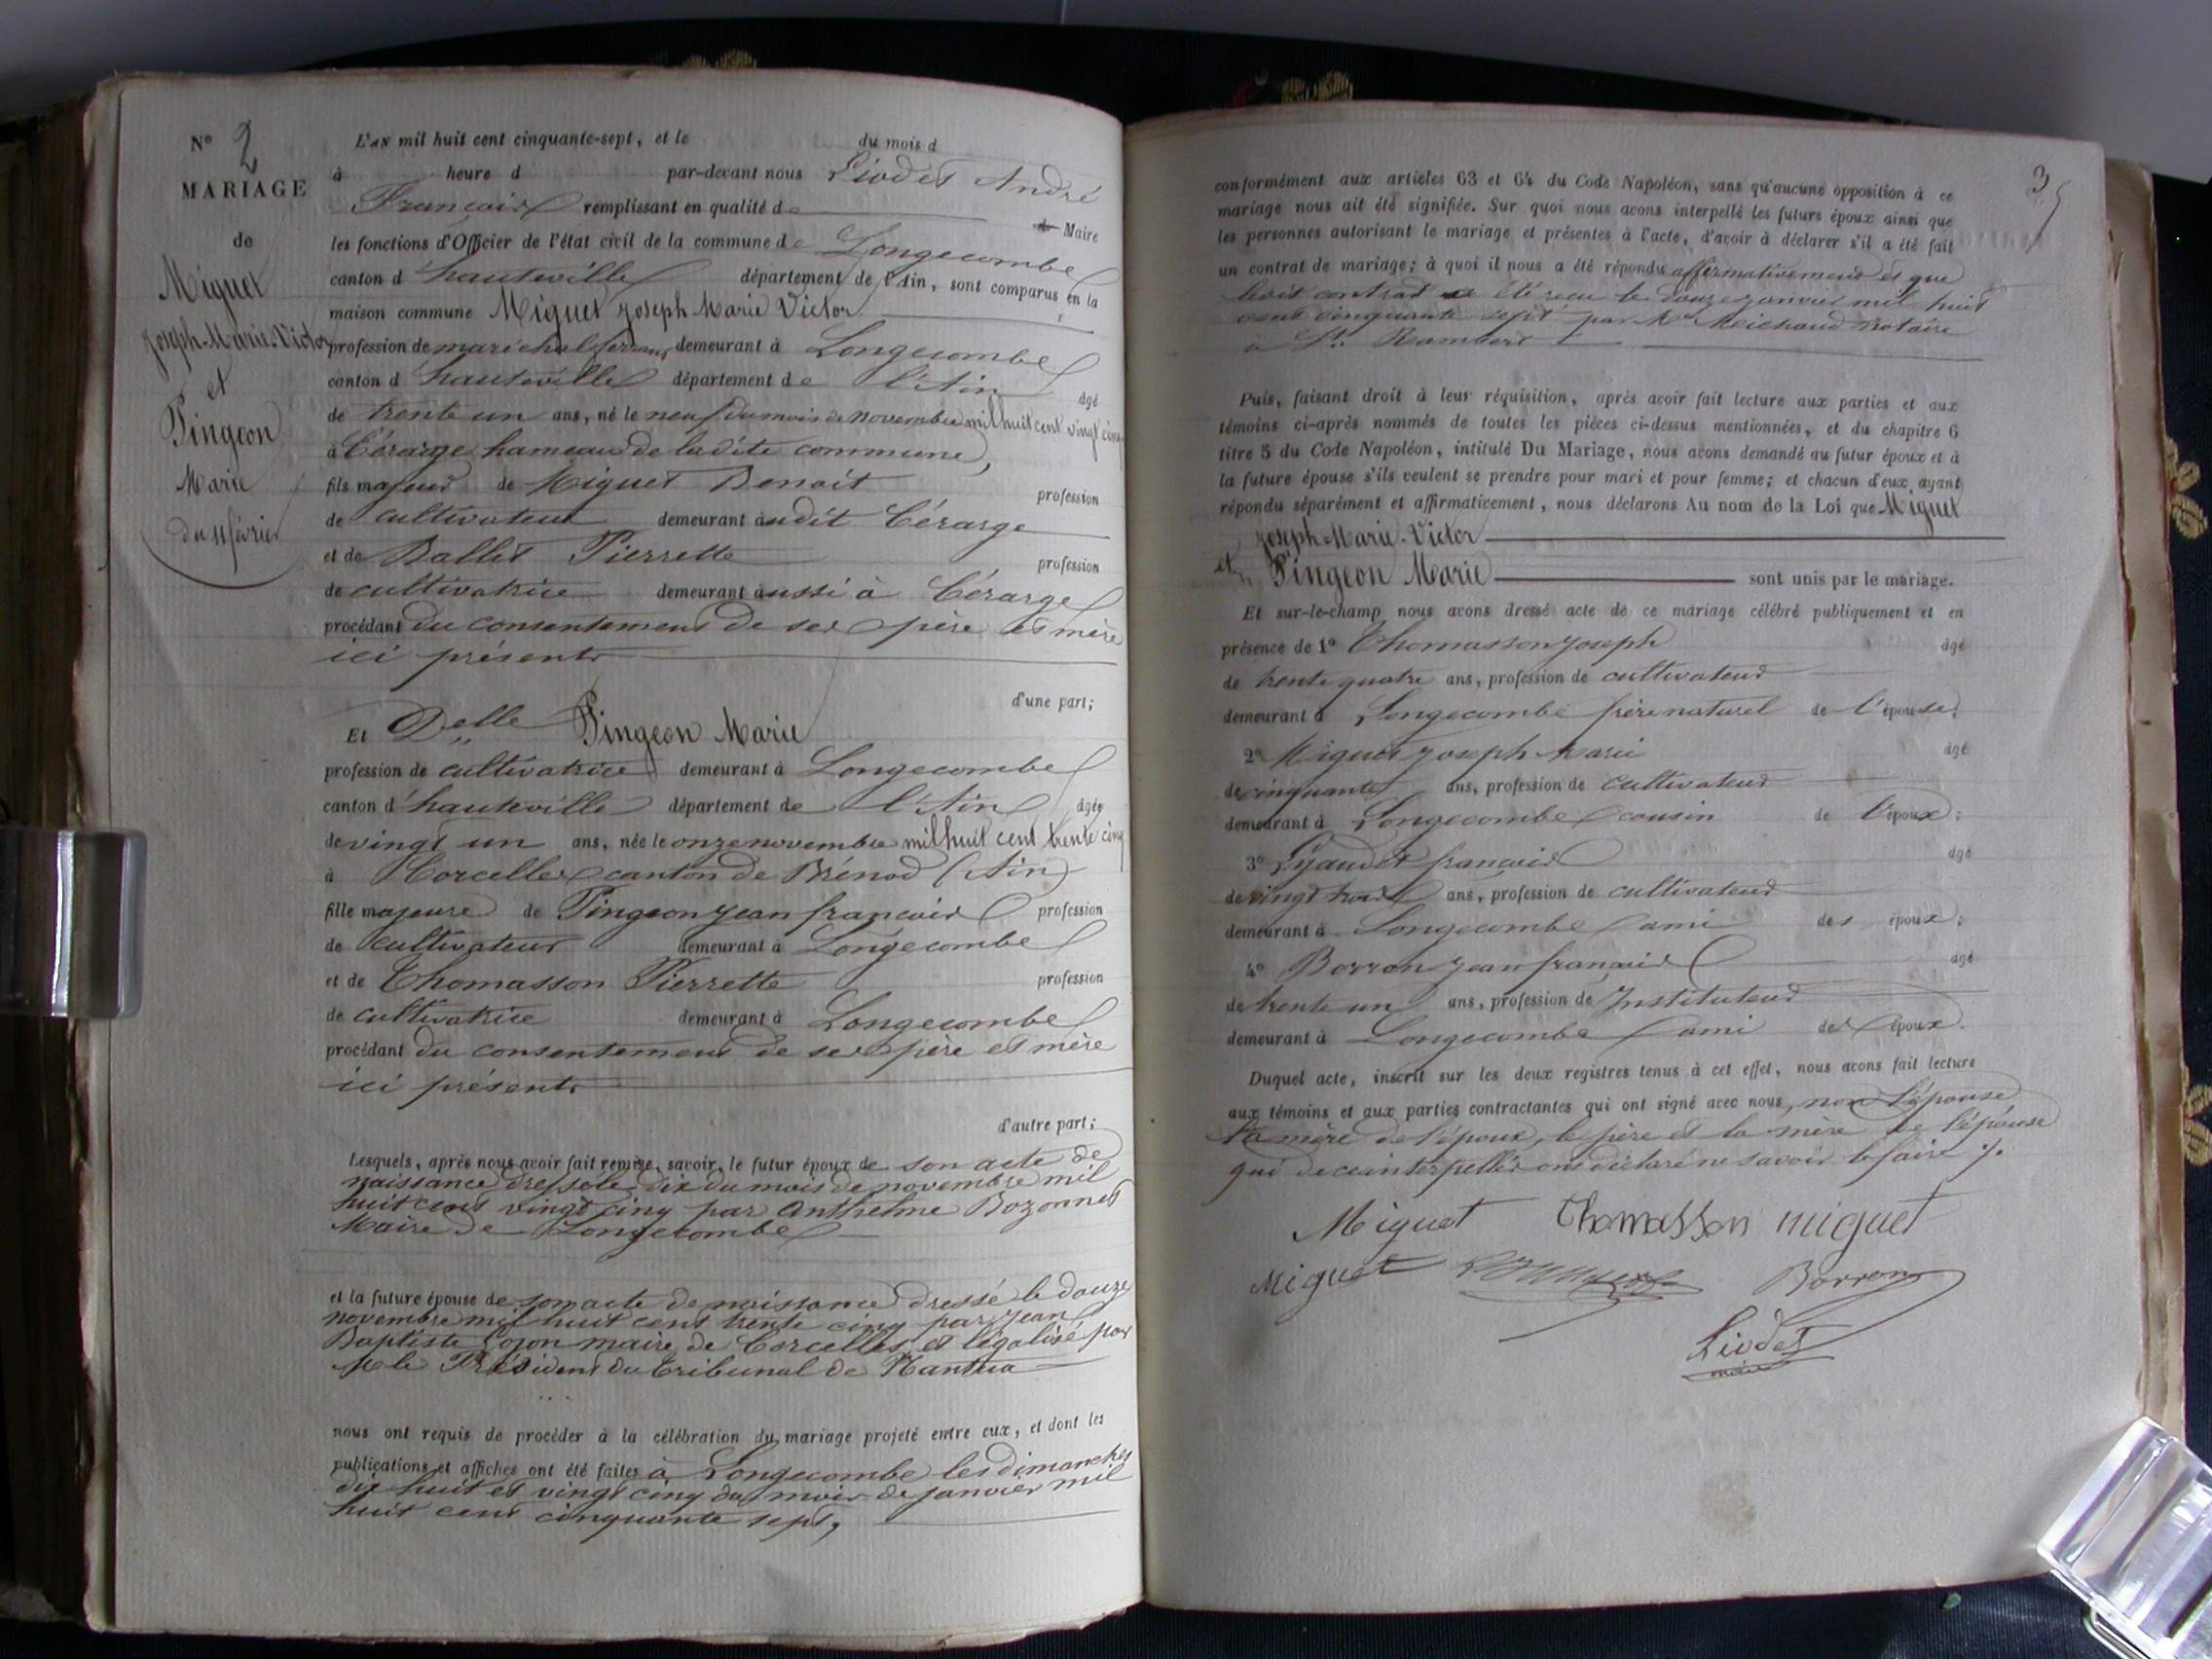 N° 2
MARIAGE
de
Miguet
Joseph-Marie-Victor
et
Pingeon
Marie
du 11 février
L'AN mil huit cent cinquante-sept, et le du mois d
à heure d par-devant nous Liodet André
François remplissant en qualité de Maire
les fonctions d'Officier de l'état civil de la commune de Longecombe
canton d'hauteville département de l'Ain, sont comparus en la
maison commune Miguet Joseph Marie Victor
profession de maréchal ferrant demeurant à Longecombe
canton d'hauteville département de l'Ain âgé
de trente un ans, né le neuf du mois de novembre mil huit cent vingt cinq
à Cérarge hameau de ladite commune,
fils majeur de Miguet Benoit profession
de cultivateur demeurant audit Cérarge
et de Ballet Pierrette profession
de cultivatrice demeurant aussi à Cérarge
procédant du consentement de ses père et mère
ici présents
d'une part;
Et Delle Pingeon Marie
profession de cultivatrice demeurant à Longecombe
canton d'hauteville département de l'Ain âgée
de vingt un ans, née le onze novembre mil huit cent trente cinq
à Corcelles canton de Brénod (Ain)
fille majeure de Pingeon Jean françois profession
de cultivateur demeurant à Longecombe
et de Thomasson Pierrette profession
de cultivatrice demeurant à Longecombe
procédant du consentement de ses père et mère
ici présents
d'autre part;
Lesquels, après nous avoir fait remise, savoir, le futur époux de son acte de
naissance dressé le dix du mois de novembre mil
huit cent vingt cinq par Anthelme Bozonnet
Maire de Longecombe
et la future épouse de son acte de naissance dressé le douze
novembre mil huit cent trente cinq par Jean
Baptiste maire de Corcelles et légalisé par
M le Président du tribunal de Nantua
nous ont requis de procéder à la célébration du mariage projeté entre eux, et dont les
publications et affiches ont été faites à Longecombe les dimanches
dix huit et vingt cinq du mois de janvier mil
huit cent cinquante sept,
3
conformément aux articles 63 et 64 du Code Napoléon, sans qu'aucune opposition à ce
mariage nous ait été signifiée. Sur quoi nous avons interpellé les futurs époux ainsi que
les personnes autorisant le mariage et présentes à l'acte, d'avoir à déclarer s'il a été fait
un contrat de mariage; à quoi il nous a été répondu affirmativement et que
ledit contrat a été reçu le douze janvier mil huit
cent cinquante sept par Me Meichaud notaire
à St. Rambert
Puis, faisant droit à leur réquisition, après avoir fait lecture aux parties et aux
témoins ci-après nommés de toutes les pièces ci-dessus mentionnées, et du chapitre 6
titre 5 du Code Napoléon, intitulé Du Mariage, nous avons demandé au futur époux et à
la future épouse s'ils veulent se prendre pour mari et pour femme; et chacun d'eux ayant
répondu séparément et affirmativement, nous déclarons Au nom de la Loi que Miguet
Joseph-Marie-Victor
et Pingeon Marie sont unis par le mariage.
Et sur-le-champ nous avons dressé acte de ce mariage célébré publiquement et en
présence de 1° Thomasson Joseph âgé
de trente quatre ans, profession de cultivateur
demeurant à Longecombe frère naturel de l'épouse;
2° Miguet Joseph Marie âgé
de cinquante ans, profession de cultivateur
demeurant à Longecombe cousin de l'époux;
3° Lyaudet françois âgé
de vingt trois ans, profession de cultivateur
demeurant à Longecombe ami des époux;
4° Borron Jean françois âgé
de trente un ans, profession de Instituteur
demeurant à Longecombe ami des époux.
Duquel acte, inscrit sur les deux registres tenus à cet effet, nous avons fait lecture
aux témoins et aux parties contractantes qui ont signé avec nous, non l'épouse
la mère de l'époux, le père et la mère de l'épouse
qui de ce interpellés ont déclaré ne savoir le faire ./.
Miguet Thomasson miguet
Miguet Borron
Liodet
maire